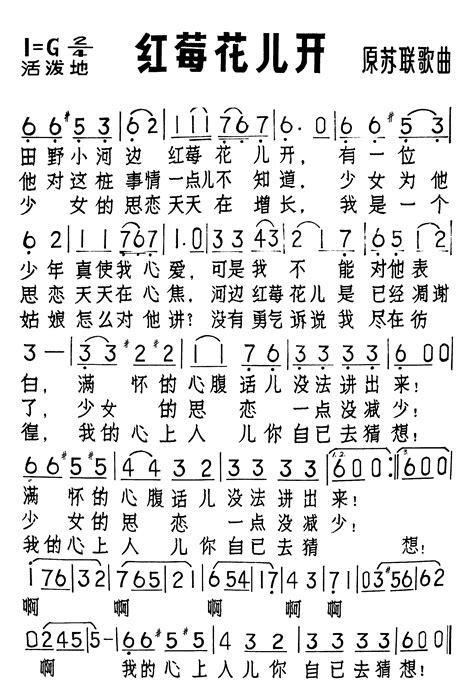 1=G 2/4 红莓花儿开 原苏联歌曲
活泼地
6 6 #5 3 | 6 2 | 1 1 1 | 7 6 7 | 6 · 0 | 6 6 #5 3 |
田野小河边 红莓花儿开，有一位
他对这桩事情一点儿不知道，少女为他
少女的思恋天天在增长，我是一个
6 2 | 1 1 | 7 6 7 | 1 · 0 | 3 3 4 3 | 3 1 | 7 1 2 | 6 5 1 2 |
少年真使我心爱，可是我不能对他表
思恋天天在心焦，河边红莓花儿是已经凋谢
姑娘怎么对他讲？没有勇气诉说我尽在彷
3 — | 3 3 #2 #2 | 1 1 | 7 6 | 3 3 3 3 | 6 0 0 |
白，满怀的心腹话儿没法讲出来！
了，少女的思恋一点没减少！
徨，我的心上人儿你自已去猜想！
6 6 #5 #5 | 4 4 3 2 | 3 3 2 2 | 6 0 0 :| 3 6 0 0 |
满怀的心腹话儿没法讲出来！
少女的思恋一点没减少！
我的心上人儿你自已去猜想！
1 7 6 | 3 2 | 7 6 5 | 2 1 | 6 5 4 | 1 7 | 4 3 | 7 1 | 0 3 #5 6 | 6 2 |
啊 啊 啊 啊 啊
0 2 4 5 | 5 - | 6 6 #5 #5 | 4 4 3 2 | 3 3 2 2 | 6 0 0 ‖
啊 我的心上人儿你自已去猜想！